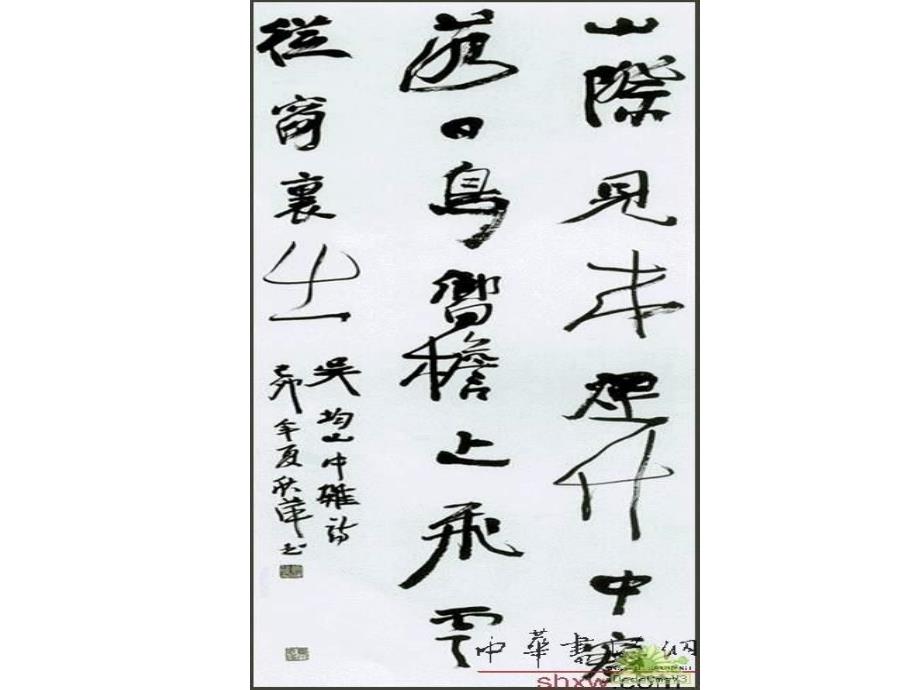 山際見來煙竹中窺
落日鳥嚮檐上飛雲
從窗裏出
吳均山中雜詩
己卯年夏
中華書網
shxw.com